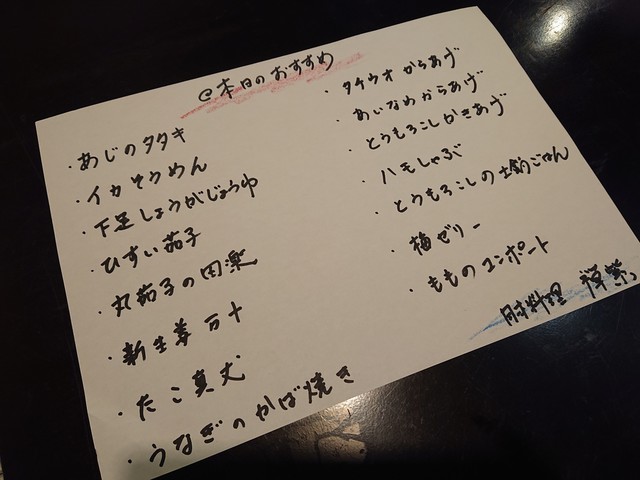 @本日のおすすめ
・あじのタタキ
・イカそうめん
・下足しょうがじょうゆ
・ひすい茄子
・丸茄子の田楽
・新生姜
・たこ真丈
・うなぎのかば焼き
・タチウオからあげ
・あいなめからあげ
・とうもろこしかきあげ
・ハモしゃぶ
・とうもろこしの土鍋ごはん
・梅ゼリー
・もものコンポート
料理